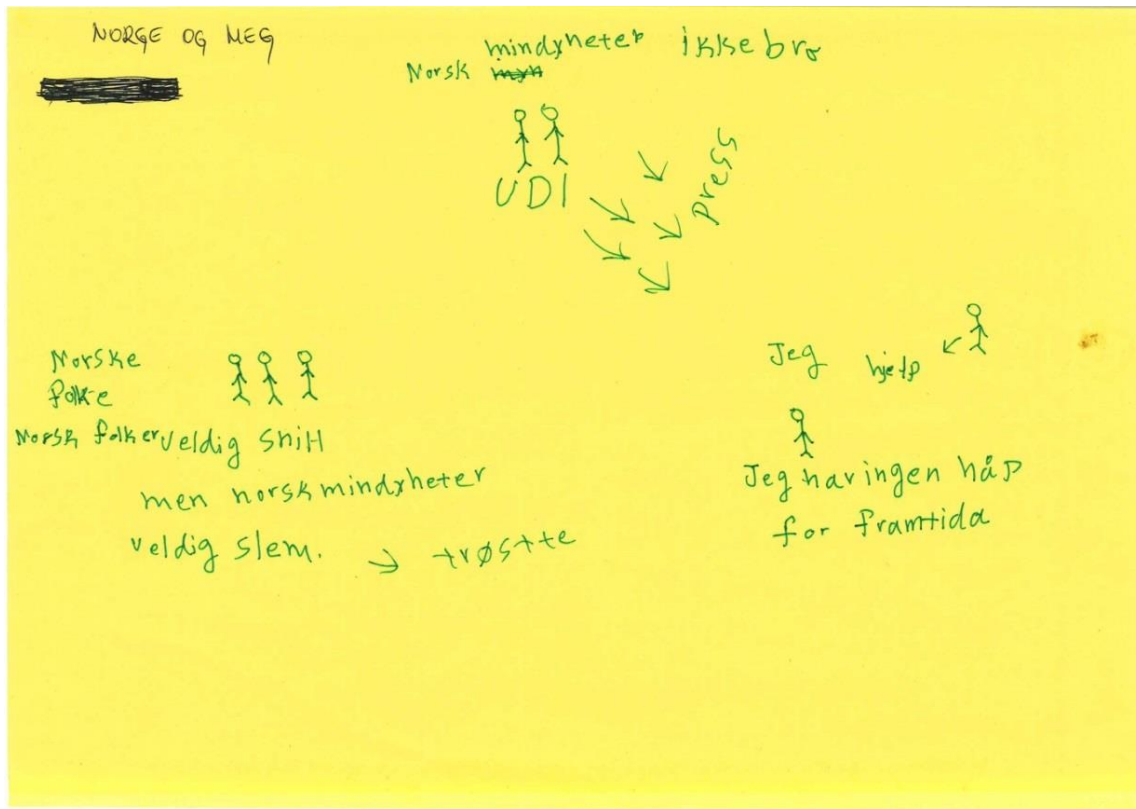 NORGE OG MEG
mindyheter ikkebra
Norsk myn
UDI
press
Norske
folke
Norsk folker veldig snill
men norsk mindyheter
veldig slem. → trøstte
Jeg hjelp
Jeg har ingen håp
for framtida